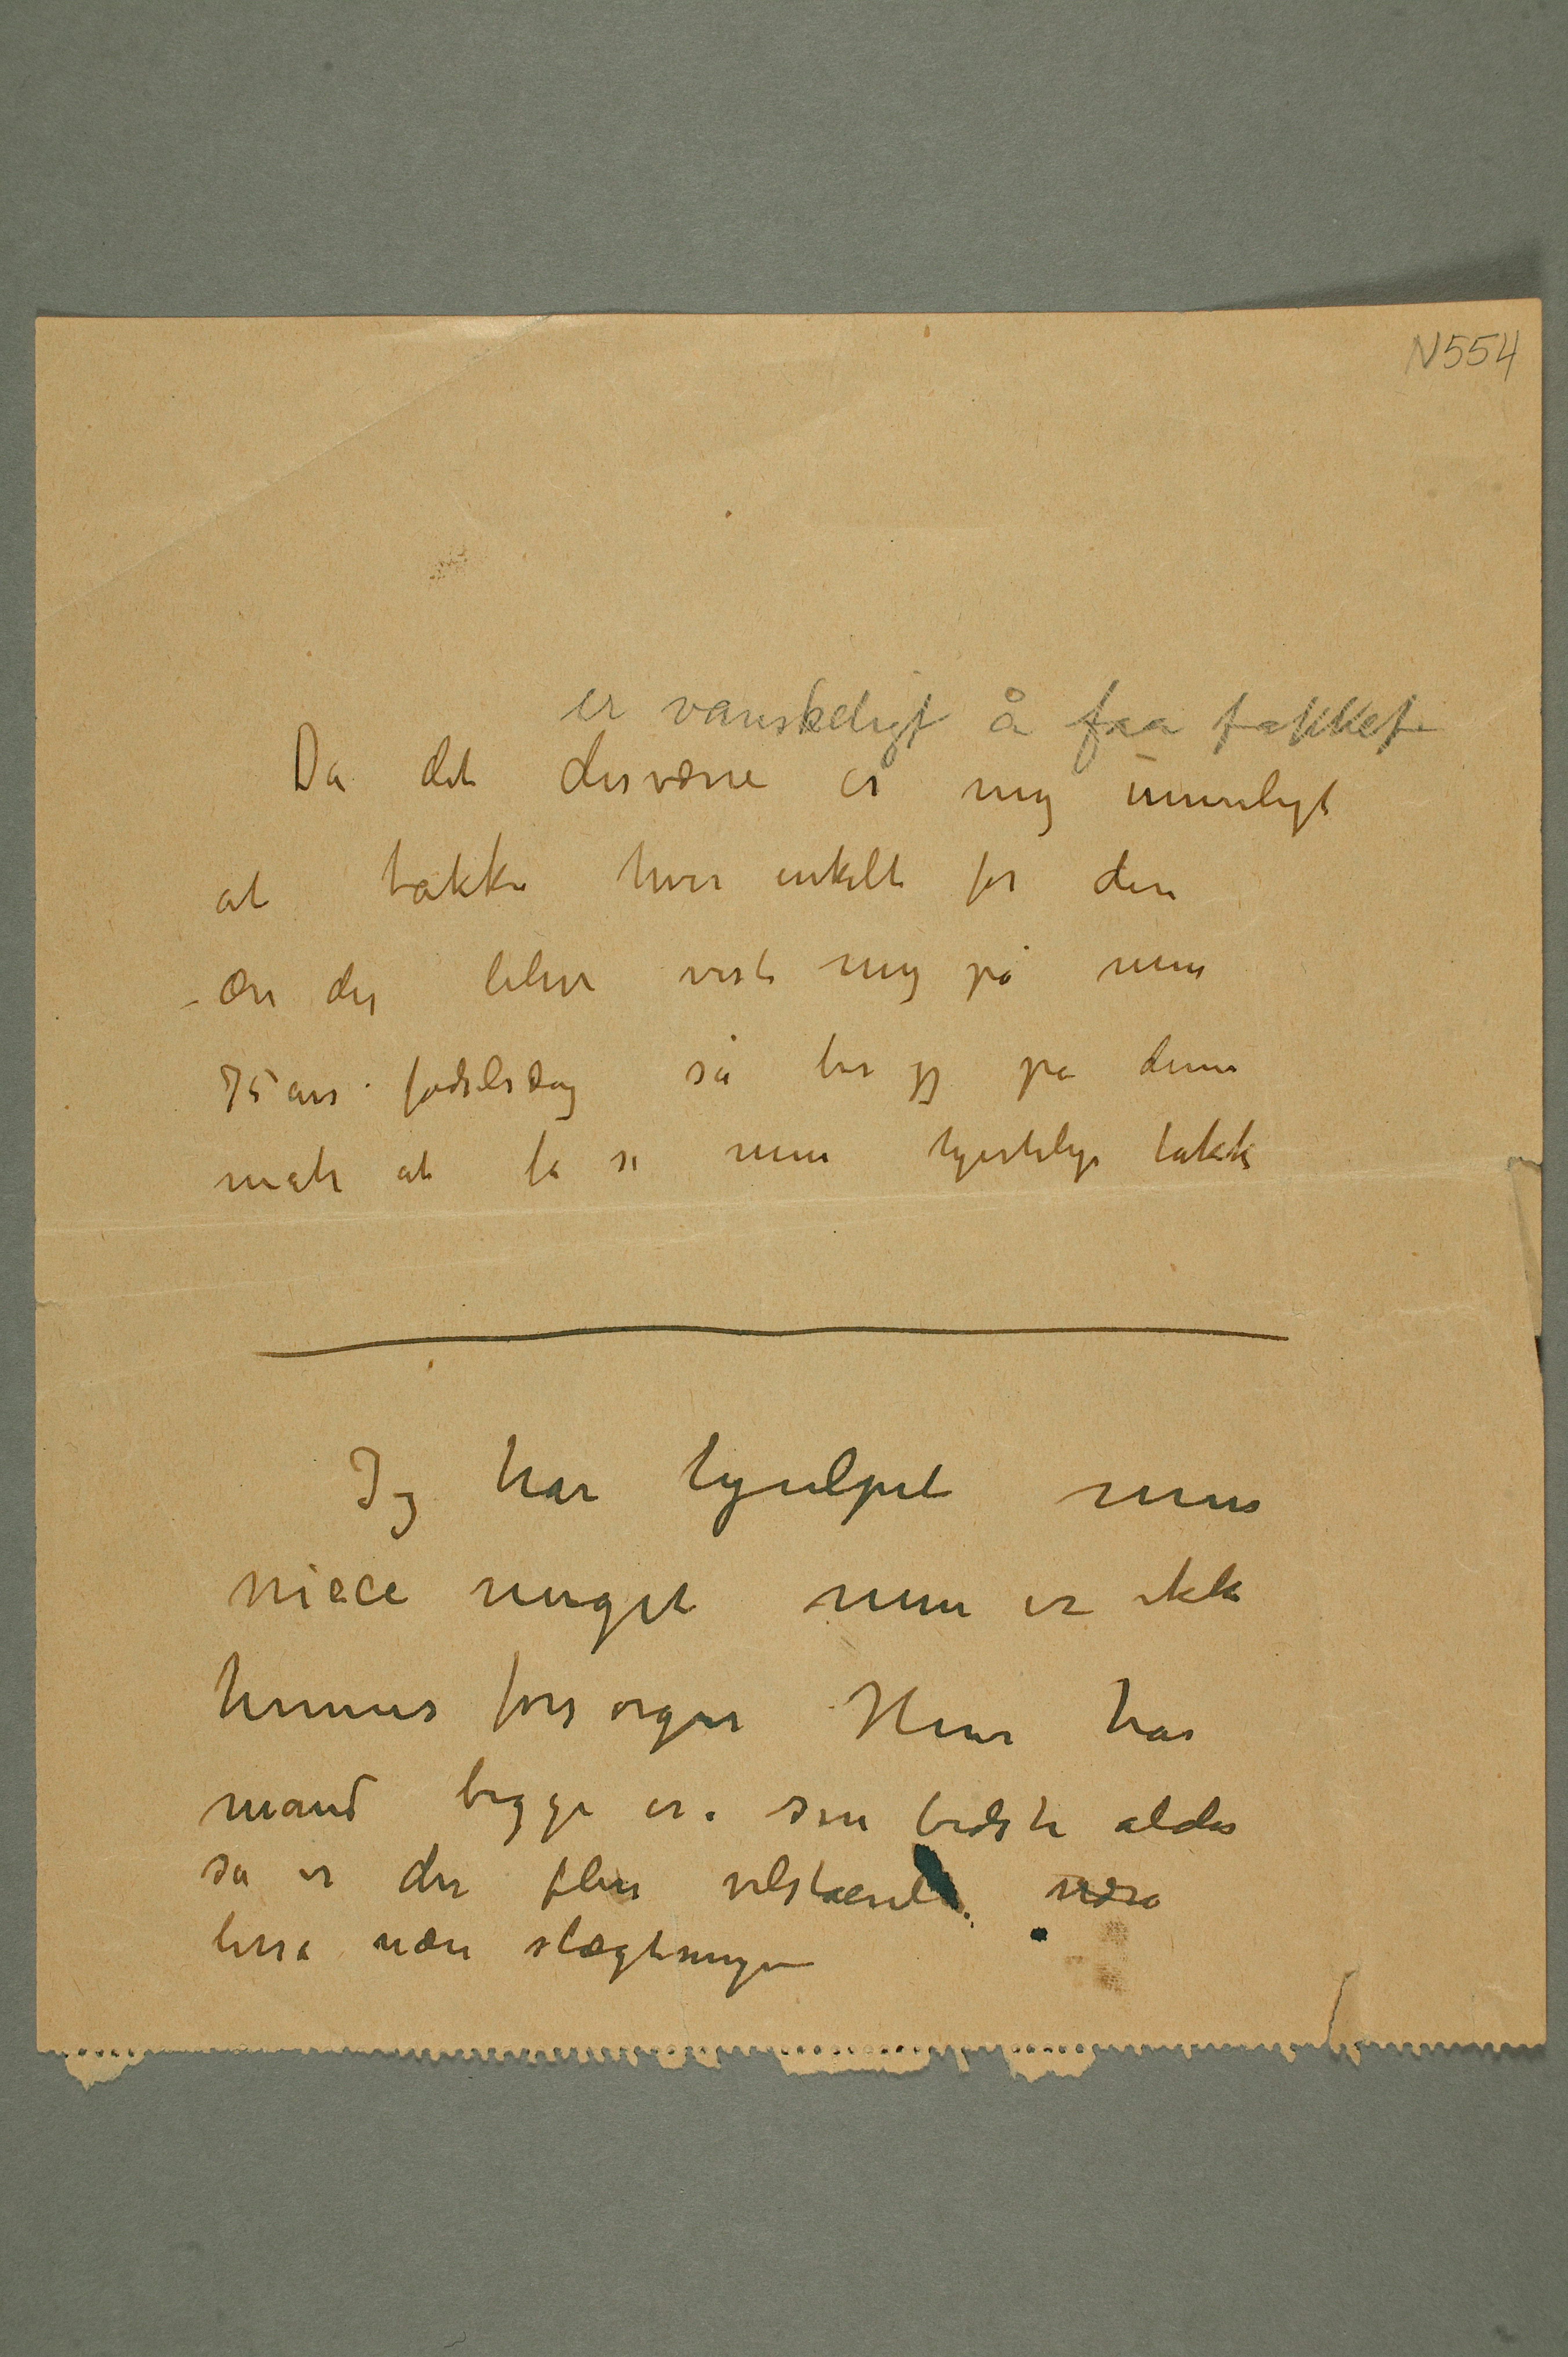 N554
er vanskeligt å faa takket
Da det desværre er mig umuligt
at takke hver enkelt for den
ære der blev vist mig på min
75 års fødselsdag så ber jeg på denne
måte at få si min hjertelige takk
Jeg har hjulpet min
niece meget men er ikke
hennes forsørger Hun har
mand begge er i sin bedste alder
så er der flere velstående nære
nære slægtninger